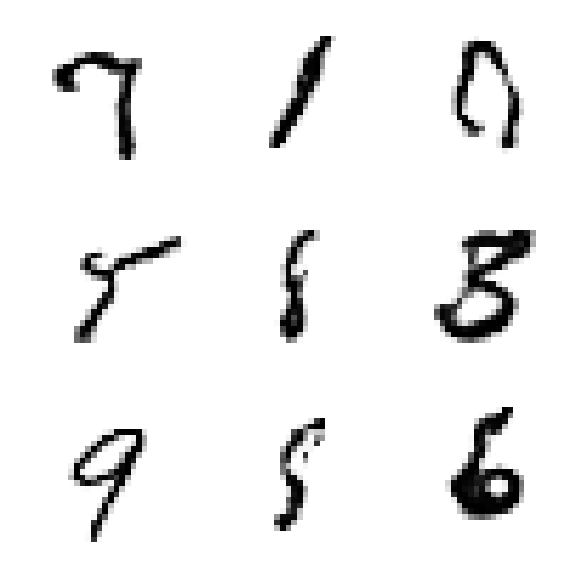 7 1 0
5 8 3
9 5 6